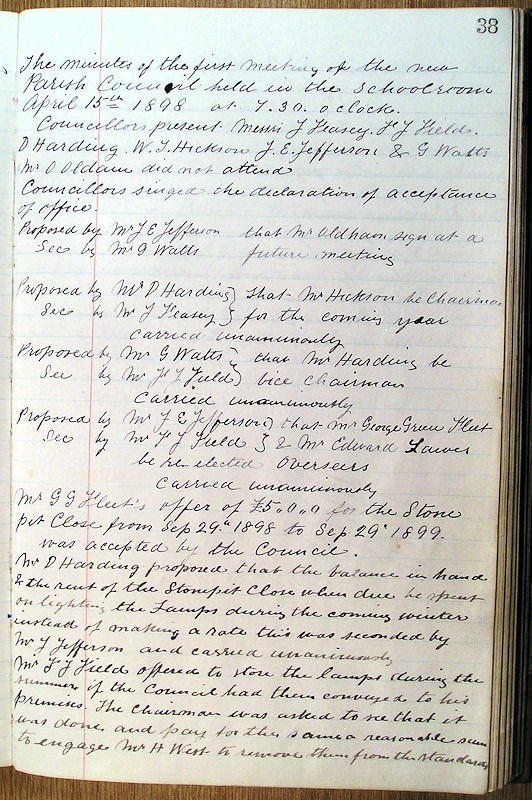 38
The minutes of the first meeting of the new
Parish Council held in the Schoolroom
April 15th 1898 at 7.30. o clock.
Councillors present Messrs J Feasey. F J Field.
D Harding. W. T. Hickson J. E. Jefferson & G Watts
Mr O Oldam did not attend
Councillors singed the declaration of acceptance
of office
Proposed by Mr J E Jefferson that Mr Oldham sign at a
Sec by Mr G Watts future meeting
Proposed by Mr D Harding } that Mr Hickson be Chairman
Sec by Mr J Feasey } for the coming year
Carried unanimously
Proposed by Mr G Watts } that Mr Harding be
Sec by Mr F J Field } vice Chairman
Carried unanimously
Proposed by Mr J E Jefferson } that Mr George Green Fleet
Sec by Mr F J Field } & Mr Edward Lawes
be re-elected Overseers
Carried unanimously
Mr G G Fleet's offer of £5,,0,,0 for the Stone
pit Close from Sep 29th 1898 to Sep 29th 1899.
was accepted by the Council.
Mr D Harding proposed that the balance in hand
& the rent of the Stonepit Close when due be spent
on lighting the Lamps during the coming winter
instead of making a rate this was seconded by
Mr J Jefferson and carried unanimously
Mr F J Field offered to store the lamps during the
summer if the Council had them conveyed to his
premises. The Chairman was asked to see that it
was done and pay for the same a reasonable sum
to engage Mr H West to remove them from the standards